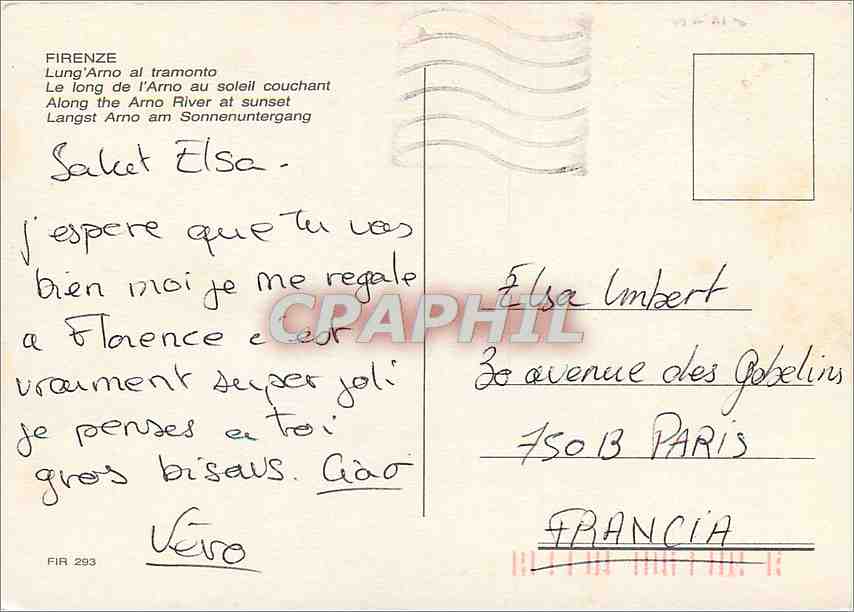 FIRENZE
Lung'Arno al tramonto
Le long de l'Arno au soleil couchant
Along the Arno River at sunset
Langst Arno am Sonnenuntergang
Salut Elsa -
j'espere que tu vas
bien moi je me regale
a Florence c'est
vraiment super joli
je penses a toi
gros bisous. Ciao
Véro
FIR 293
Elsa Imbert
30 avenue des Gobelins
75013 PARIS
FRANCIA
CPAPHIL